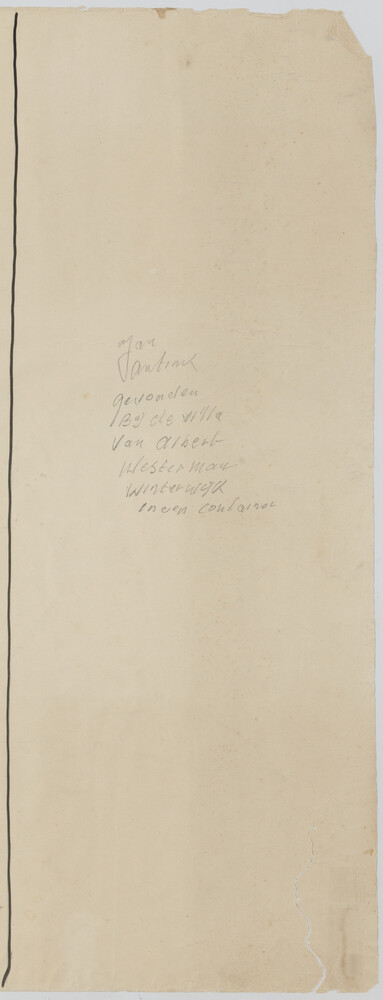 Jan
gevonden
Bij de villa
van Albert
Westerman
Winterwijk
in een container